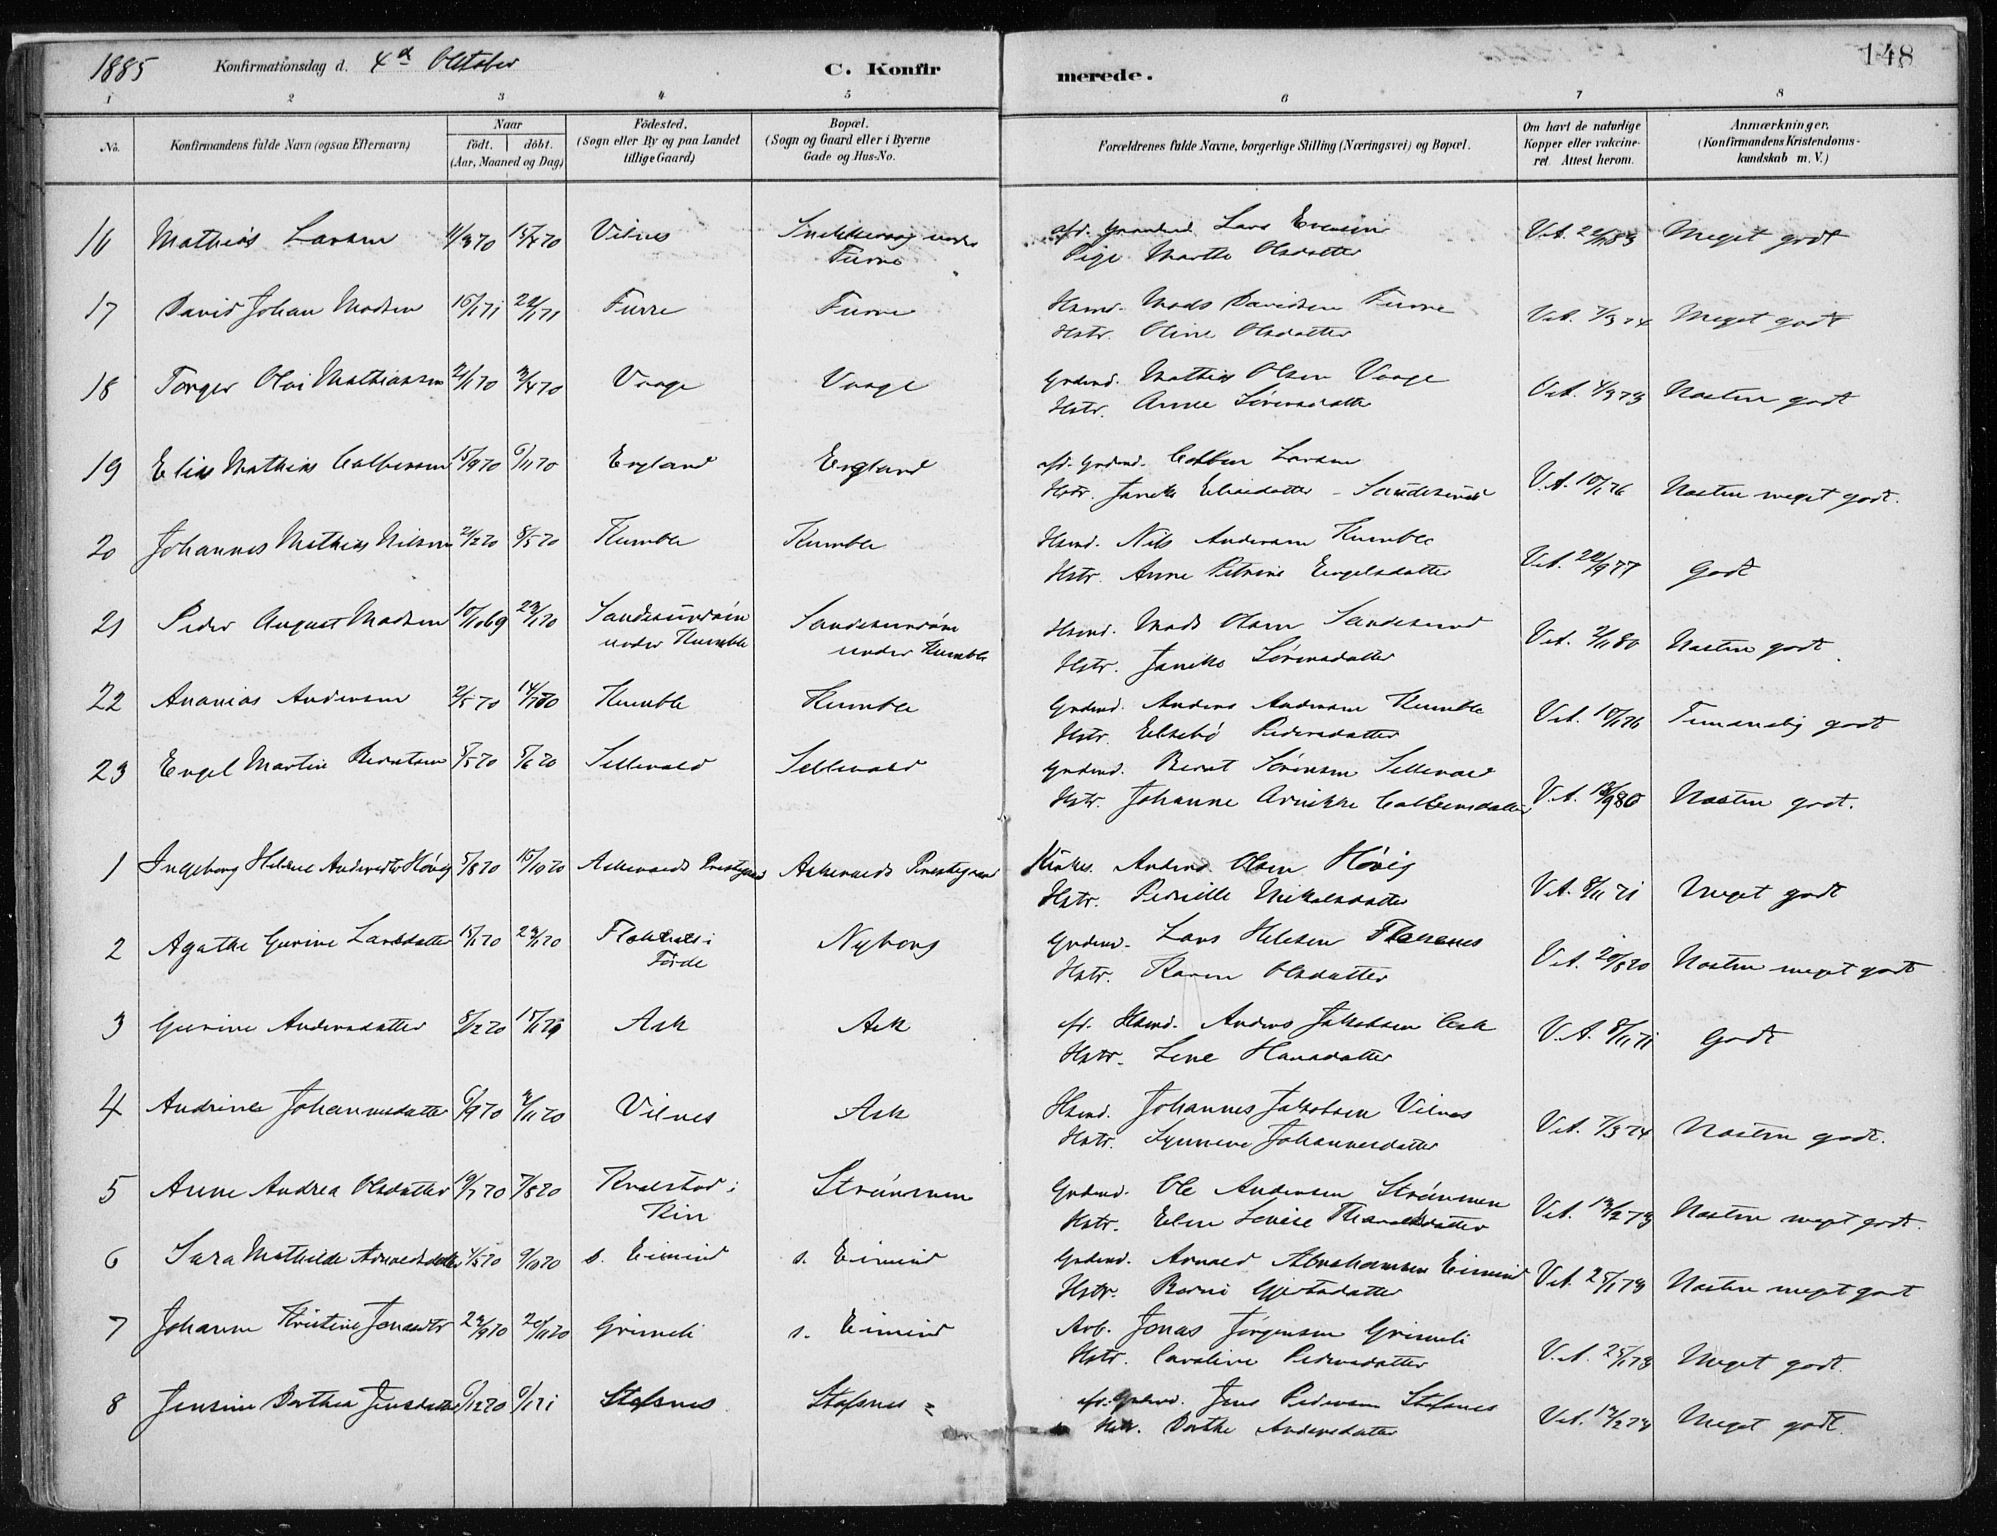 1885 Konfirmationsdag d. 4de Oktober C. Konfirmerede. 148
1 2 3 4 5 6 7 8
No. Konfirmandens fulde Navn (ogsaa Efternavn) Naar født. døbt. (Aar, Maaned og Dag) Fødested. (Sogn eller By og paa Landet tillige Gaard) Bopæl. (Sogn og Gaard eller i Byerne Gade og Hus-No. Forældrenes fulde Navne, borgerlige Stilling (Næringsvei) og Bopæl. Om havt de naturlige Kopper eller vakcineret. Attest herom. Anmærkninger. (Konfirmandens Kristendomskundskab m. V.)
16 Mathias Larsen 4/3 70 15/4 70 Vilnes under Furre Lars
Pige Marthe Olsdatter V.A. Meget godt
17 David Johan Madsen 16/1 71 22/1 71 Furre Furre Hsmd. Mads Davidsen Furre
Hstr. Oline Olsdatter V.A. 7/3 74 Meget godt
18 Torger Olai Mathiassen 2/1 70 3/4 70 Vaage Vaage Grdmd. Mathias Olsen Vaage
Hstr. Anne Sørensdatter V.A. 4/9 73 Næsten godt
19 Elias Mathias 15/9 70 6/11 70 England England afd. Grdmd. Larsen
Hstr. Janike Eliasdatter - Sandesund V.A. 10/1 76 Næsten meget godt.
20 Johannes Mathias Nilsen 21/2 70 8/5 70 Humble Humble Hsmd. Nils Andersen Humble
Hstr. Anne Petrine Engelsdatter V.A. 22/9 77 Godt
21 Peder August Madsen 10/10 69 23/1 70 Sandesundøen under Humble Sandesundøen under Humble Hsmd. Mads Olsen Sandesund
Hstr. Janike Sørensdatter V.A. 2/11 80 Næsten godt.
22 Ananias Andersen 2/5 70 Humble Humble Grdmd. Anders Andersen Humble
Hstr. Elsebø Pedersdatter V.A. 10/1 76 Temmelig godt
23 Engel Martin Berntsen 8/5 70 5/6 70 Sellevold Sellevold Grdmd. Bernt Sørensen Sellevold
Hstr. Johanne Arnikke V.A. 18/9 80 Næsten godt.
1 Ingeborg Helene Andersdtr Høvig 5/8 70 16/10 70 Askevolds Prestegaard Askevolds Prestegaard Kirkes. Anders Olsen Høvig
Hstr. Pernille Nikolsdatter V.A. 8/11 71 Meget godt
2 Agathe Gurine Larsdatter 15/1 70 23/1 70 i Førde Nyborg Grdmd. Lars Helesen
Hstr. Karen Olsdatter V.A. 20/8 70 Næsten meget godt
3 Gurine Andersdatter 8/2 70 Ask Ask afd. Hsmd. Anders Jakobsen Ask
Hstr. Lene Hansdatter V.A. 8/11 71 Godt
4 Andrine Johannesdatter 6/9 70 Vilnes Ask Hsmd. Johannes Jakobsen Vilnes
Hstr. Synneve Johannesdatter V.A. 7/3 74 Næsten godt.
5 Anne Andrea Olsdatter 19/7 70 7/8 70 i Kin Strømmen Grdmd. Ole Andersen Strømmen
Hstr. Elen Lovise V.A. 13/2 73 Næsten meget godt.
6 Sara Mathilde Arnoldsdatter 9/10 70 s. Eimind s. Eimind Grdmd. Arnold Abrahamsen Eimind
Hstr. Gjertsdatter V.A. 25/1 73 Næsten meget godt
7 Johanne Kristine Jonasdtr 23/9 70 20/11 70 Grimeli s. Eimind Arb. Jonas Jørgensen Grimeli
Hstr. Caroline Pedersdatter V.A. 25/1 73 Meget godt.
8 Jensine Dorthea Jensdatter 6/12 70 6/1 71 Stafsnes Stafsnes afd. Grdmd. Jens Pedersen Stafsnes
Hstr. Dorthe Andersdatter V.A. 13/2 73 Meget godt.